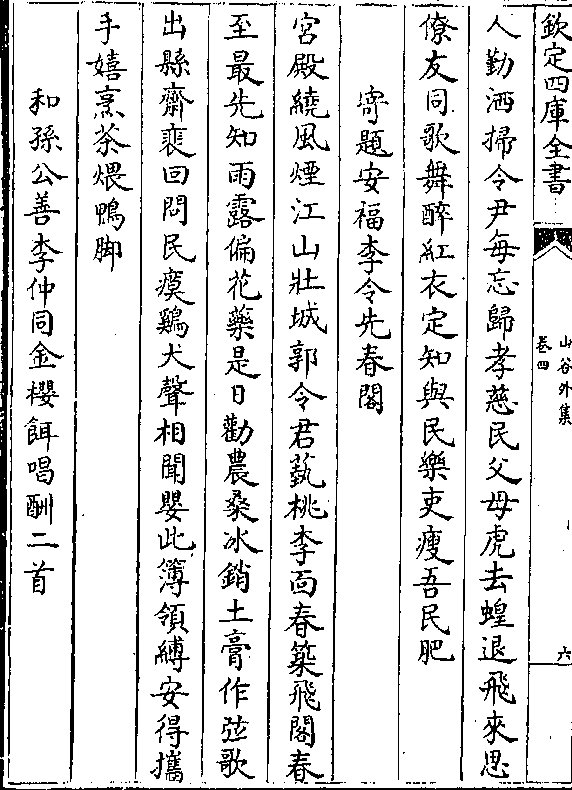 欽定四庫全書
山谷外集
卷四
六
人勤洒掃令尹每忘歸孝慈民父母虎去蝗退飛來思
僚友同歌舞醉紅衣定知與民樂吏瘦吾民肥
寄題安福李令先春閣
宮殿繞風煙江山壯城郭令君蓺桃李面春築飛閣春
至最先知雨露偏花藥是日勸農桑冰銷土膏作弦歌
出縣齋裵回問民瘼鷄犬聲相聞嬰此簿領縛安得攜
手嬉烹茶煨鴨脚
和孫公善李仲同金櫻餌唱酬二首